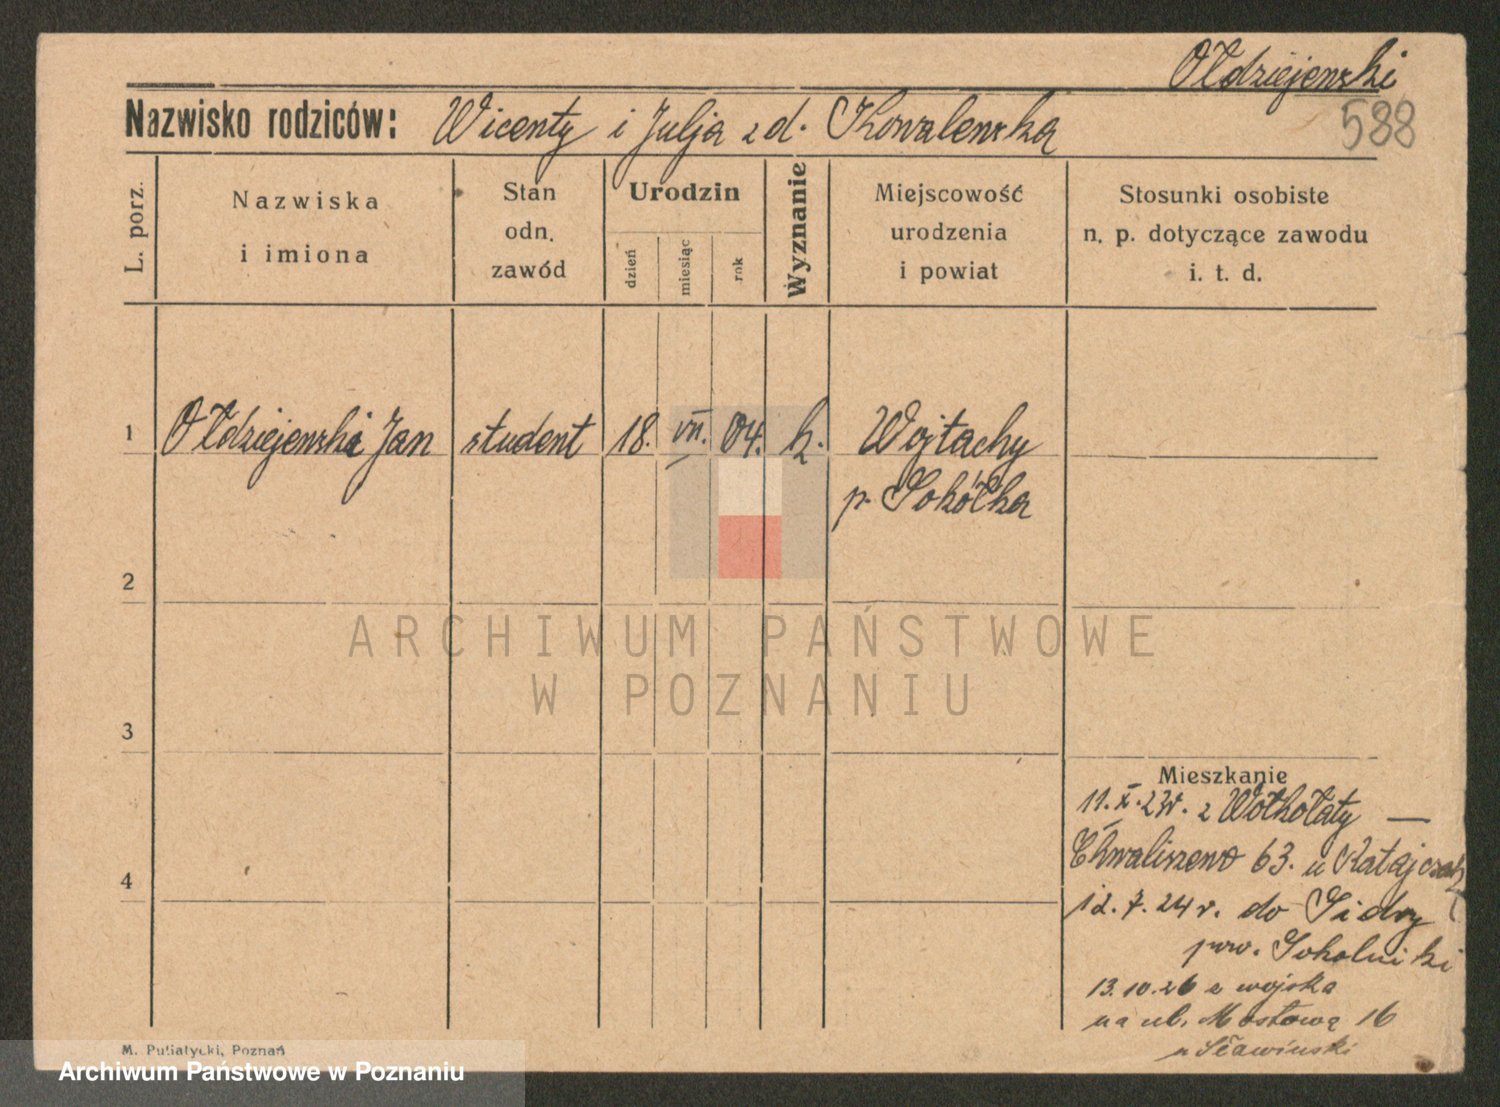 Ołdziejewski
588
Nazwisko rodziców: Wicenty i Julja z d. Kowalewska
L. porz.
Nazwiska
i imiona
Stan
odn.
zawód
Urodzin
dzień
miesiąc
rok
Wyznanie
Miejscowość
urodzenia
i powiat
Stosunki osobiste
n. p. dotyczące zawodu
i. t. d.
1 Ołdziejewski Jan student 18. VII. 04. k. Wojtachy
p. Sokółka
2
3
4
Mieszkanie
11.X.23r. z Wołkołaty —
Chwaliszewo 63. u Katajczak
12.7.24 r. do Sidry
pow. Sokolniki
13.10.26 z wojska
na ul. Mostową 16
u Sławinski
M. Putiatycki, Poznań
ARCHIWUM PAŃSTWOWE
W POZNANIU
Archiwum Państwowe w Poznaniu